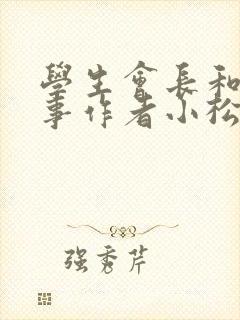 學生會長和
事作者小松
强秀芹